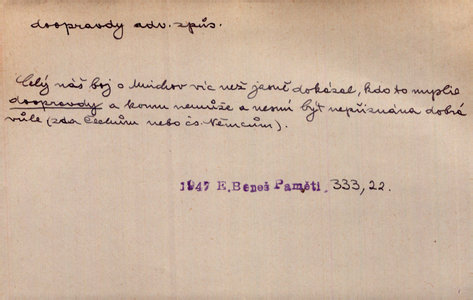 doopravdy adv. způs.
Celý náš boj o Mnichov víc než jasně dokázal, kdo to myslil
doopravdy a komu nemůže a nesmí být nepřiznána dobrá
vůle (zda Čechům nebo čs. Němcům).
1947 E. Beneš Paměti, 333, 22.